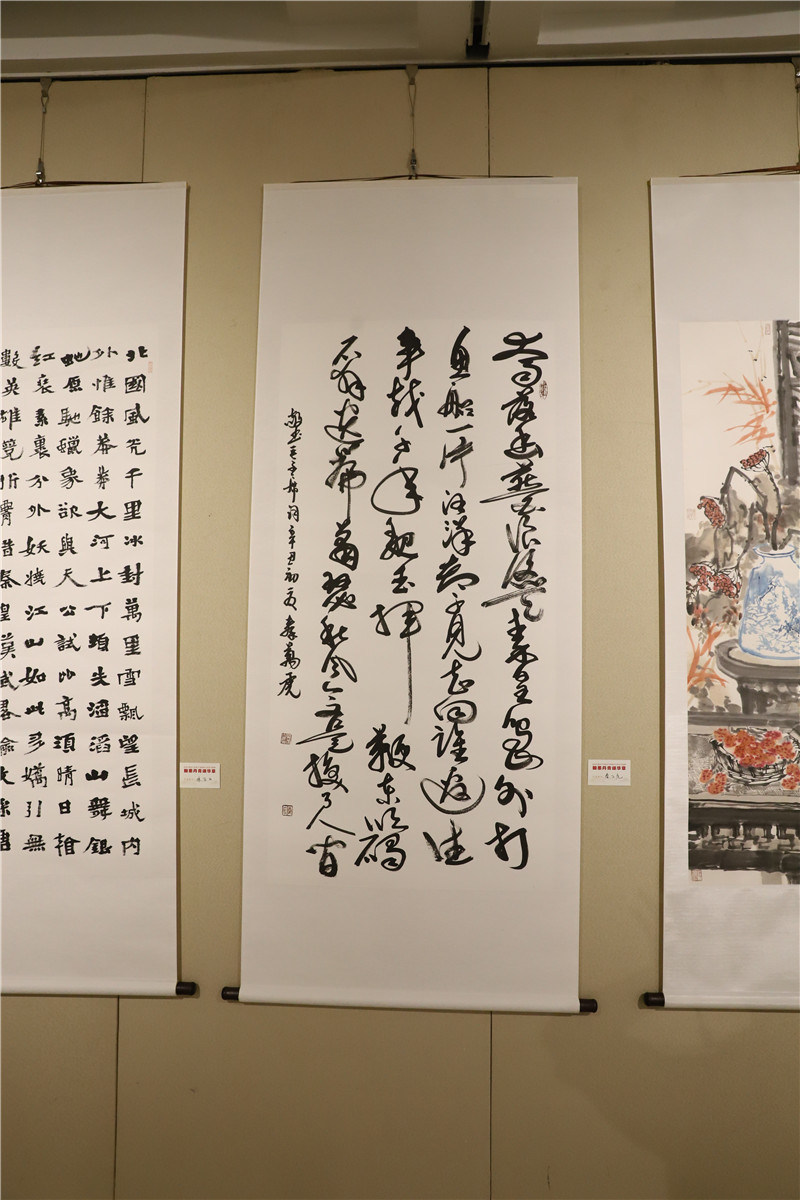 大雨落幽燕白浪滔天秦皇岛外打
鱼船一片汪洋都不见知向谁边往
事越千年魏武挥
鞭东临碣
石有遗篇萧瑟秋风今又是换了人间
敬书毛主席词辛丑初夏萬虎
北國風光千里冰封萬里雪飄望長城内
外惟餘莽莽大河上下頓失滔滔山舞銀
蛇原馳蠟象欲與天公試比高須晴日看
紅裹素裹分外妖嬈江山如此多嬌引無
數英雄競折腰昔秦皇漢武略輸文采唐